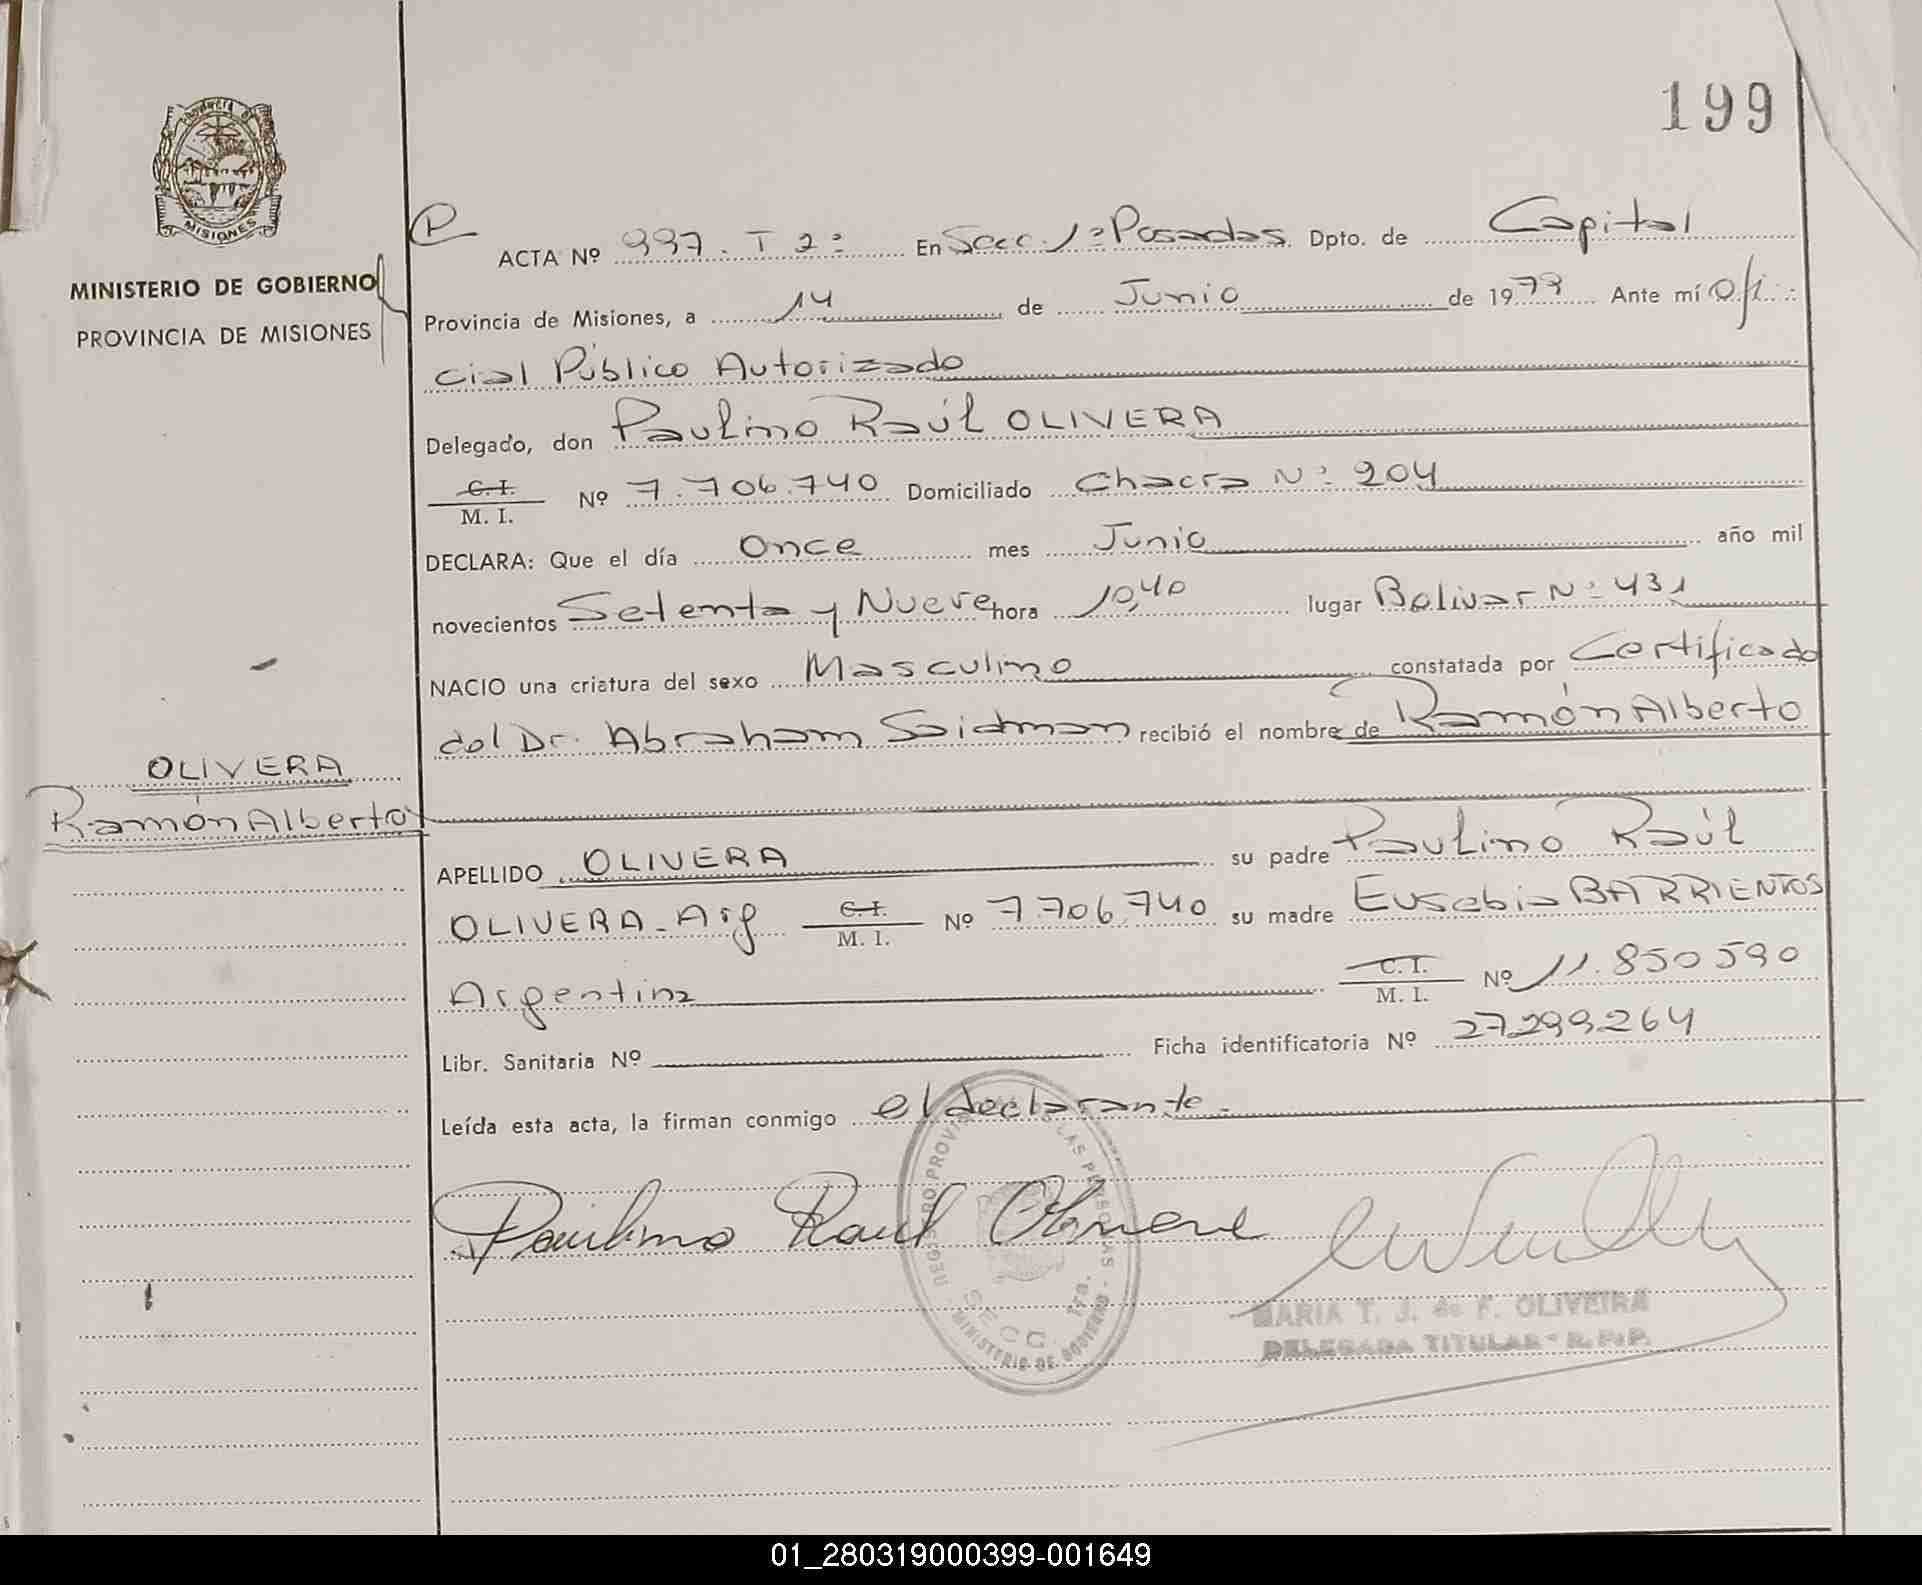 199
PROVINCIA DE
MISIONES
MINISTERIO DE GOBIERNO
PROVINCIA DE MISIONES
P
ACTA Nº 997. T 2º En Secc. 1ª Posadas. Dpto. de Capital
Provincia de Misiones, a 14 de Junio de 1979 Ante mí Ofi
cial Público Autorizado
Delegado, don Paulino Raúl OLIVERA
C. I. / M. I. Nº 7.706.740 Domiciliado Chacra Nº 204
DECLARA: Que el día Once mes Junio año mil
novecientos Setenta y Nueve hora 10,40 lugar Bolivar Nº 431
NACIO una criatura del sexo Masculino constatada por Certificado
del Dr. Abraham Saidman recibió el nombre de Ramón Alberto
OLIVERA
Ramón Alberto
APELLIDO OLIVERA su padre Paulino Raúl
OLIVERA - Arg C. I. / M. I. Nº 7.706.740 su madre Eusebia BARRIENTOS
Argentina C. I. / M. I. Nº 11.850590
Libr. Sanitaria Nº Ficha identificatoria Nº 27.299.264
Leída esta acta, la firman conmigo el declarante.
Paulino Raul Olivera
REGISTRO PROVINCIAL DE LAS PERSONAS - MINISTERIO DE GOBIERNO -
SECC. 1ra.
MARIA T. J. de F. OLIVEIRA
DELEGADA TITULAR - R. P. P.
01_280319000399-001649